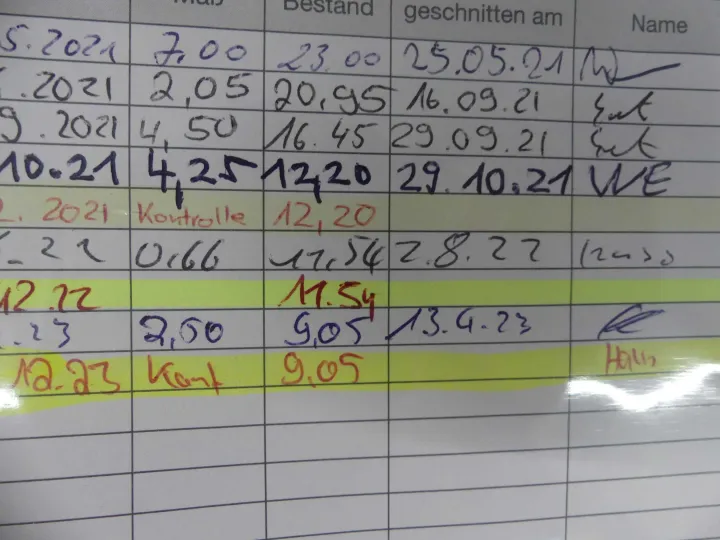 Maß Bestand geschnitten am Name
5.2021 7,00 23.00 25.05.21
.2021 2,05 20,95 16.09.21
9.2021 4,50 16.45 29.09.21
10.21 4,25 12,20 29.10.21 WE
2.2021 Kontrolle 12,20
.22 0,66 11,54 2.8.22
12.22 11.54
.23 2,50 9,05 13.4.23
12.23 Kont 9,05